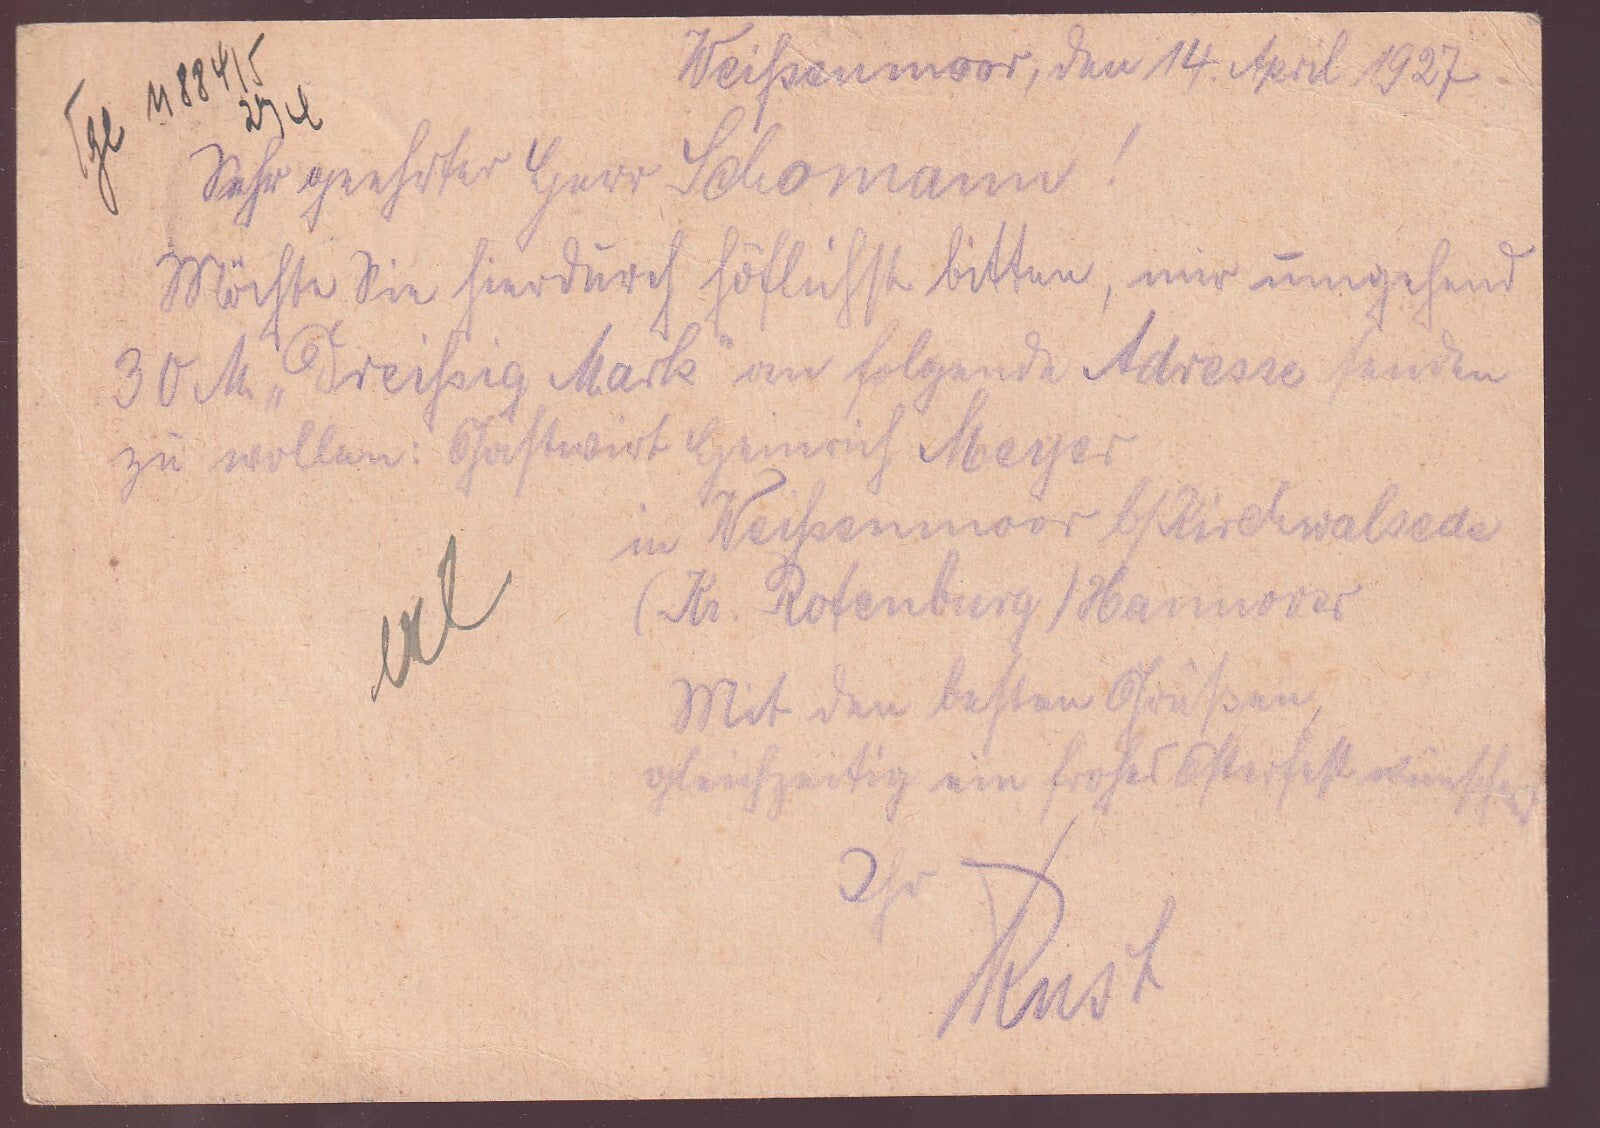 Weißenmoor, den 14. April 1927
Sehr geehrter Herr Schomann!
Möchte Sie hierdurch höflichst bitten, mir umgehend
30 M. „Dreißig Mark“ an folgende Adresse senden
zu wollen: Gastwirt Heinrich Meyer
in Weißenmoor b/Kirchwalsede
(Kr. Rotenburg) Hannover
Mit den besten Grüßen,
gleichzeitig ein frohes Osterfest wünschend
Ihr
Rust